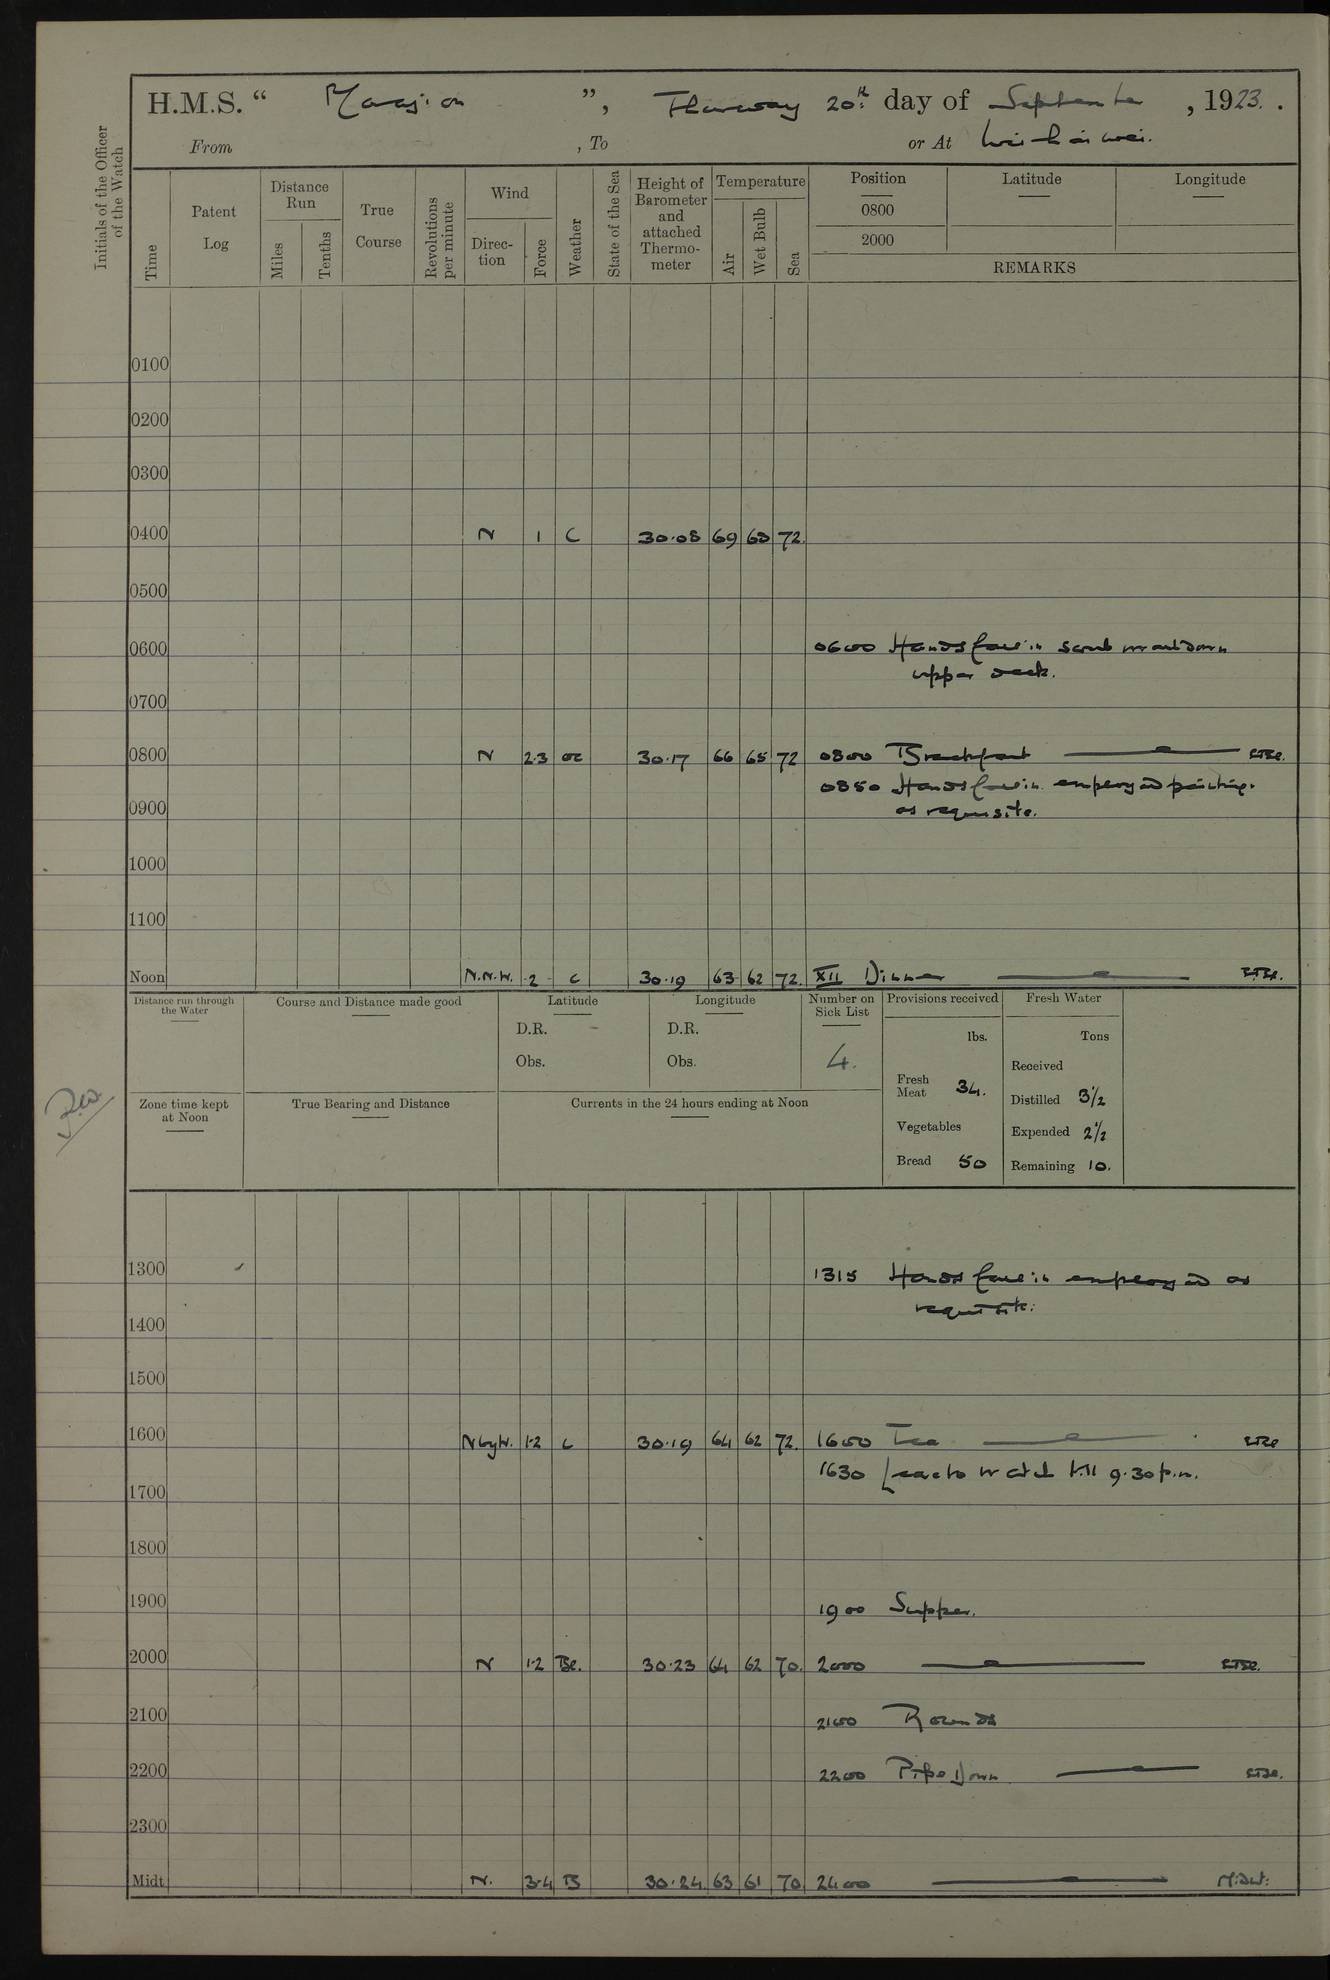 H.M.S. “ Marazion ”, Thursday 20th day of September, 1923.
From , To or At Wei-hai-wei.
Initials of the Officer of the Watch
Time
Patent Log
Distance Run
Miles
Tenths
True Course
Revolutions per minute
Wind
Direc-tion
Force
Weather
State of the Sea
Height of Barometer and attached Thermo-meter
Temperature
Air
Wet Bulb
Sea
Position
0800
2000
Latitude
Longitude
REMARKS
0100
0200
0300
0400 N 1 C 30.08 69 68 72.
0500
0600 0600 Hands fall in scrub wash down
upper deck.
0700
0800 N 2.3 oc 30.17 66 65 72 0800 Breakfast
0850 Hands fall in employed painting.
0900 as requisite.
1000
1100
Noon N.N.W. 2 c 30.19 63 62 72. XII Dinner
Distance run through the Water
Course and Distance made good
Latitude
D.R.
Obs.
Longitude
D.R.
Obs.
Number on Sick List
4.
Provisions received
lbs.
Fresh Meat 34.
Vegetables
Bread 50
Fresh Water
Tons
Received
Distilled 3½
Expended 2½
Remaining 10.
Zone time kept at Noon
True Bearing and Distance
Currents in the 24 hours ending at Noon
1300 1315 Hands fall in employed as
requisite.
1400
1500
1600 N by W. 1.2 c 30.19 64 62 72. 1600 Tea
1630 Leave to watch till 9.30 p.m.
1700
1800
1900 1900 Supper.
2000 N 1.2 Bc. 30.23 64 62 70. 2000
2100 2100 Rounds
2200 2200 Pipe Down
2300
Midt. N. 3.4 B 30.24 63 61 70 2400